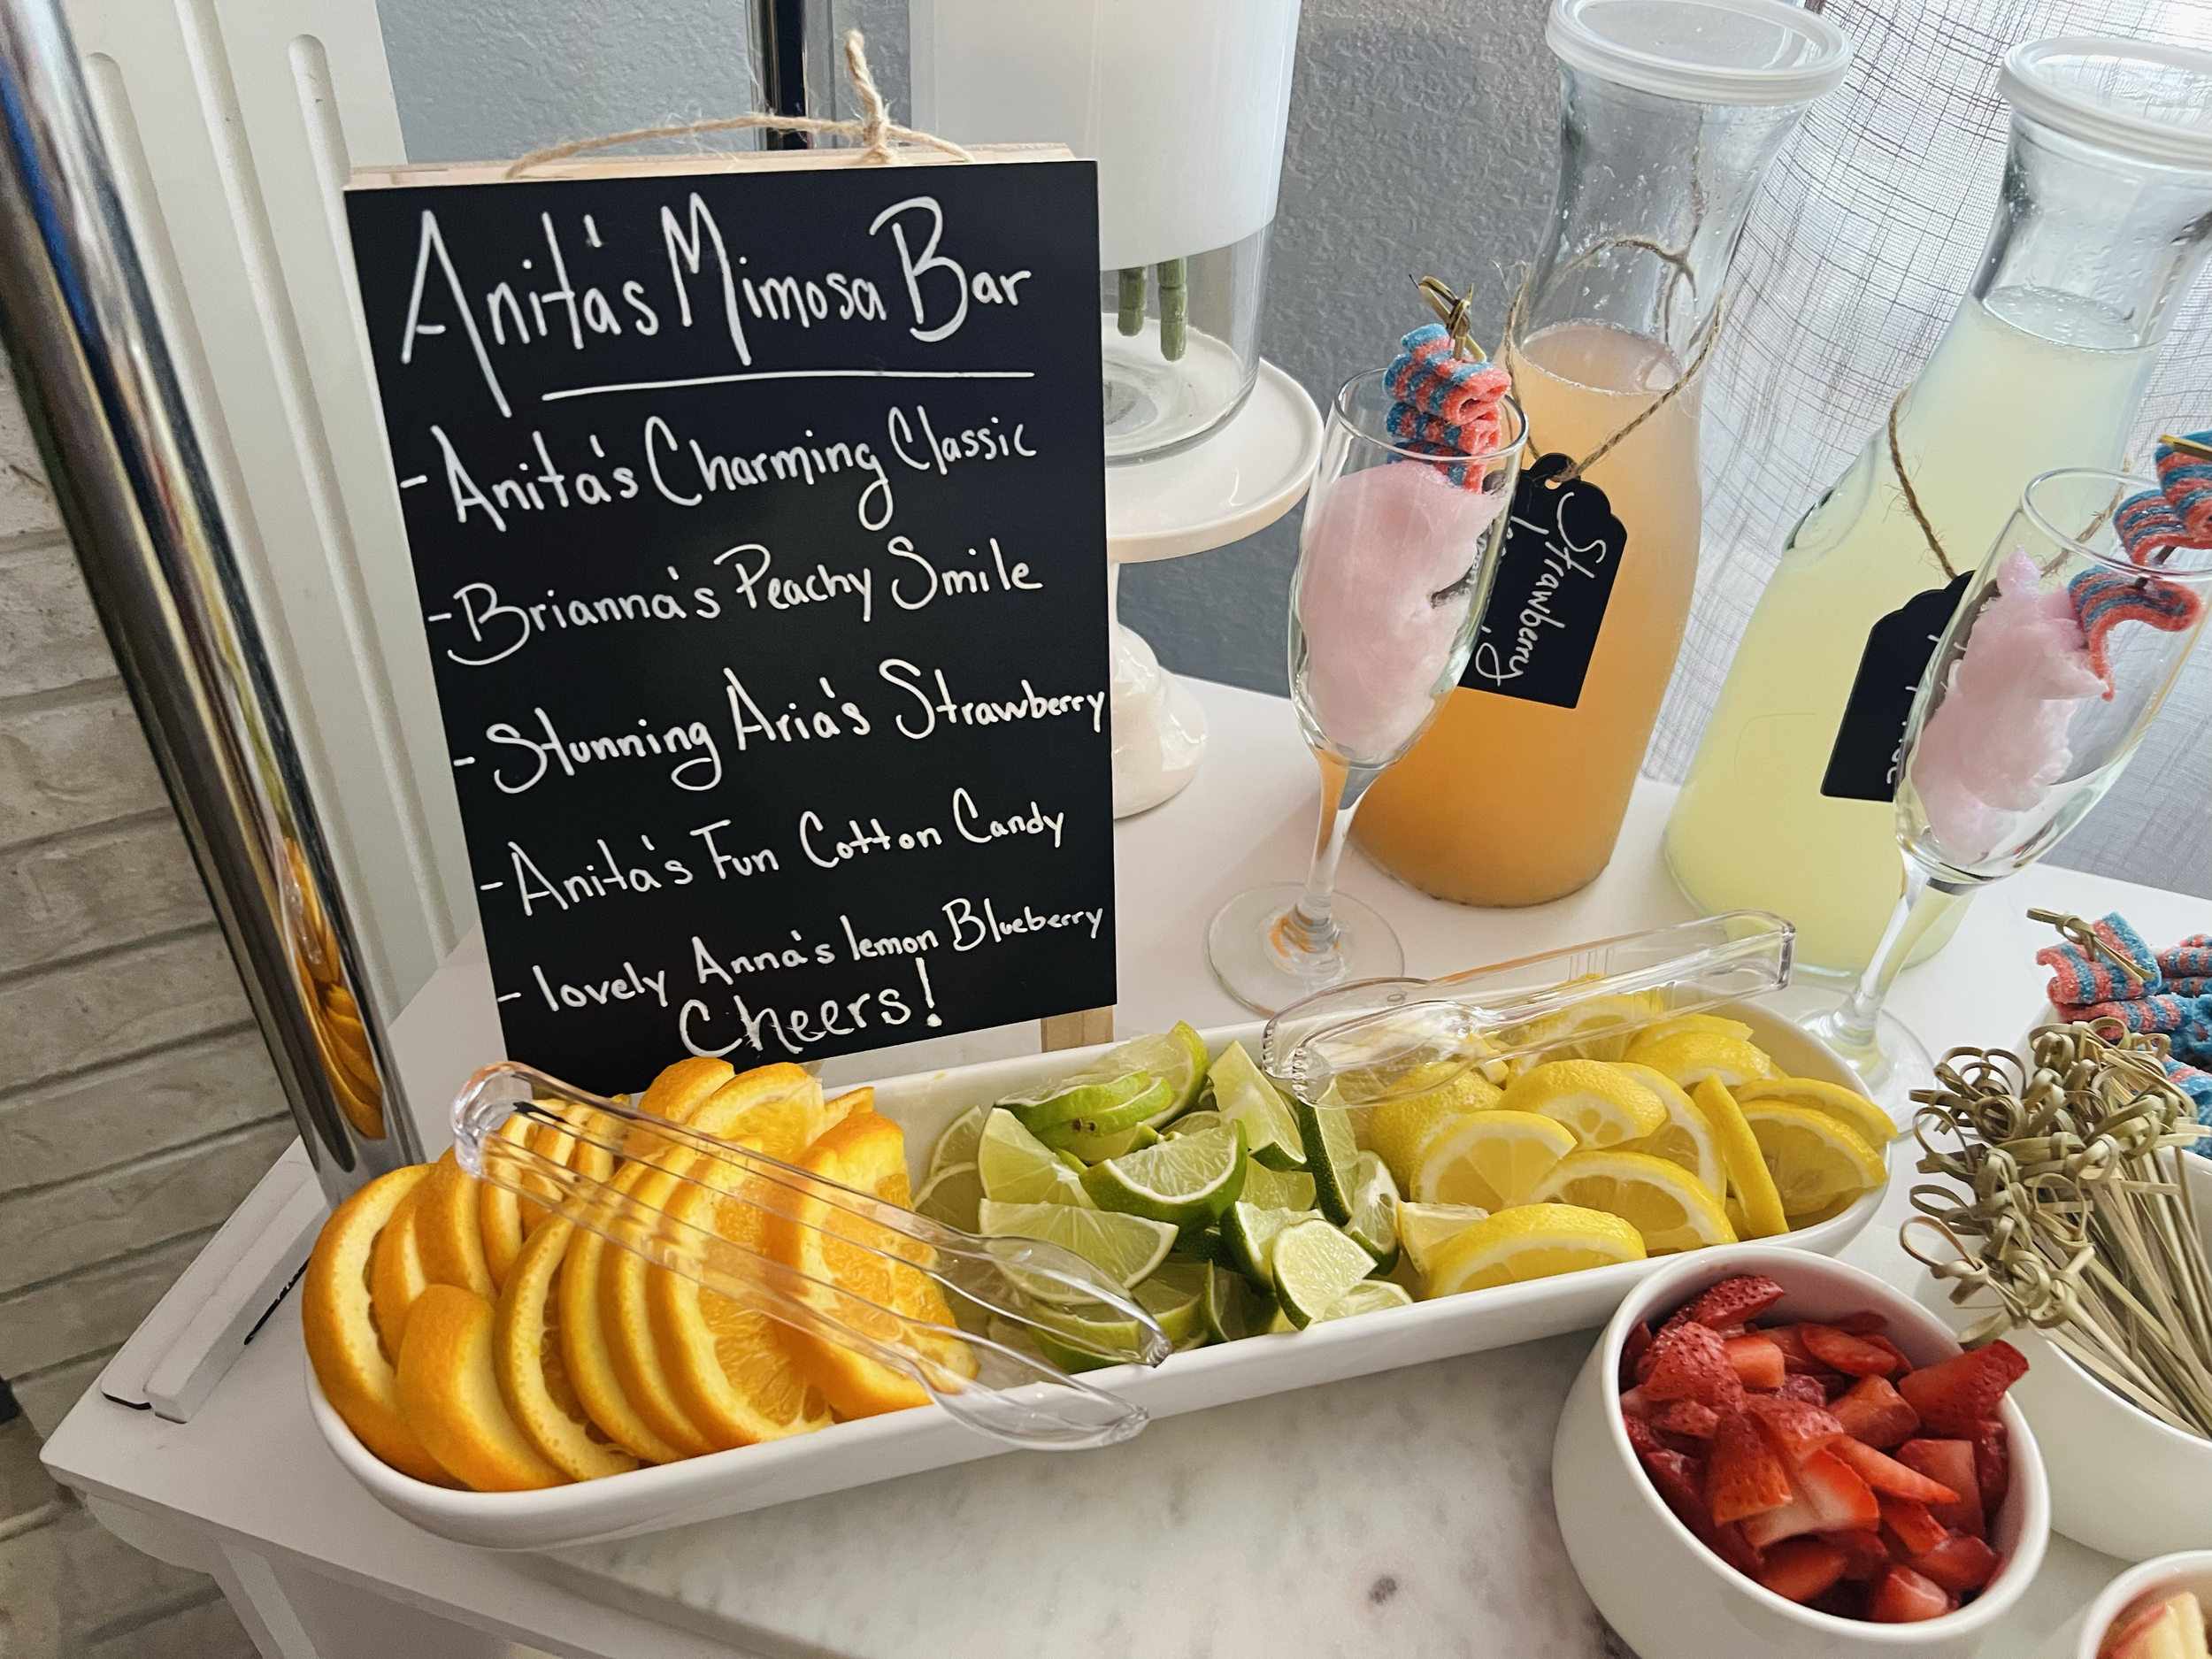 Anita's Mimosa Bar
- Anita's Charming Classic
- Brianna's Peachy Smile
- Stunning Aria's Strawberry
- Anita's Fun Cotton Candy
- lovely Anna's lemon Blueberry
Cheers!
Strawberry